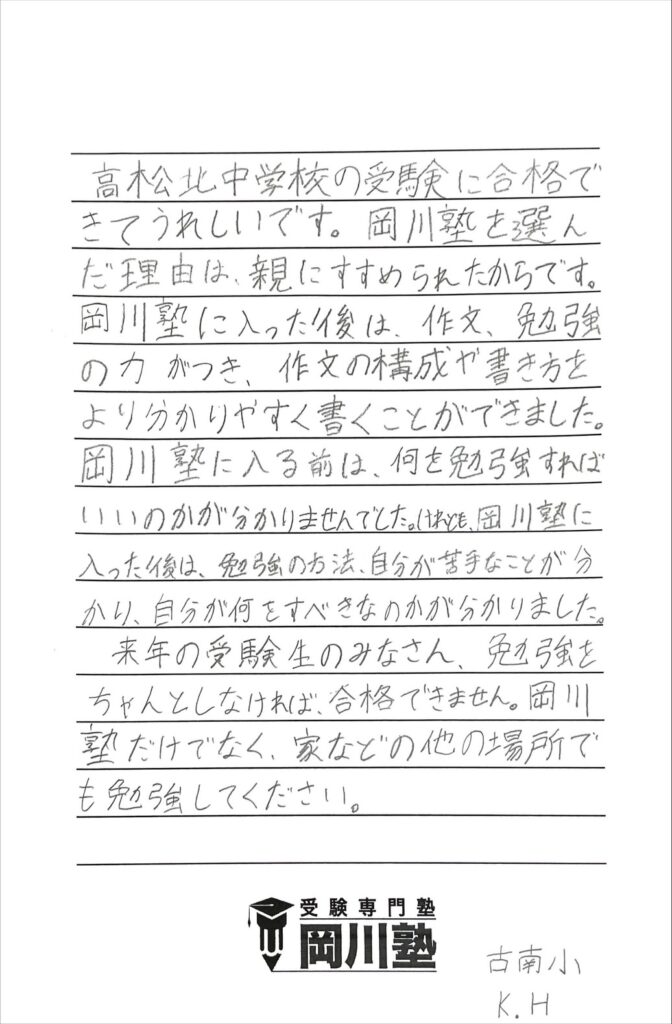 高松北中学校の受験に合格で
きてうれしいです。岡川塾を選ん
だ理由は、親にすすめられたからです。
岡川塾に入った後は、作文、勉強
の力がつき、作文の構成や書き方を
より分かりやすく書くことができました。
岡川塾に入る前は、何を勉強すれば
いいのかが分かりませんでした。けれども、岡川塾に
入った後は、勉強の方法、自分が苦手なことが分
かり、自分が何をすべきなのかが分かりました。
来年の受験生のみなさん、勉強を
ちゃんとしなければ、合格できません。岡川
塾だけでなく、家などの他の場所で
も勉強してください。
受験専門塾
岡川塾
古南小
K.H